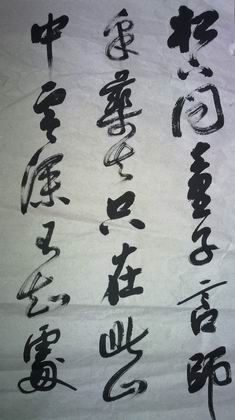 松下问童子言師
采藥去只在此山
中雲深不知處